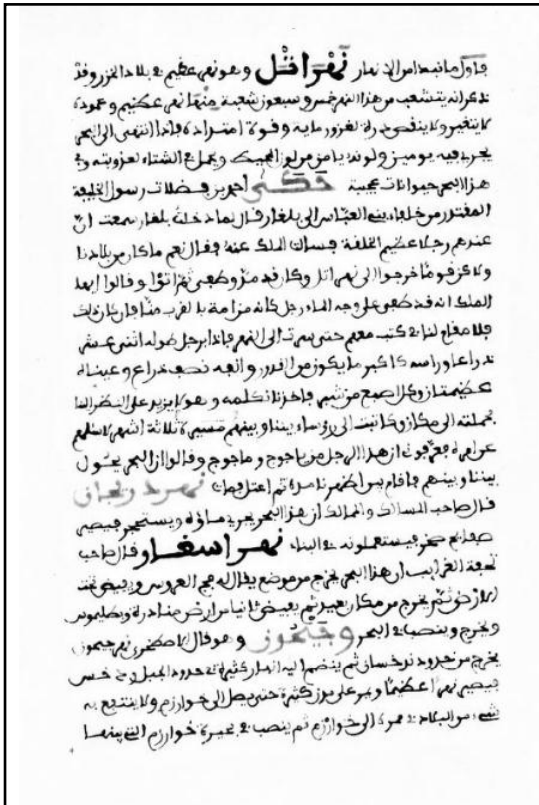 فأول ما نبدا من الانهار نهر اتل وهو نهر عظيم في بلاد الخزر وقد
ذكر انه يتشعب من هذا النهر خمس وسبعون شعبة منها نهر عظيم وعموده
لا يتغير ولا ينقص درلة لغزور مايه وقوة امتداده فاذا انتهى الى البحر
يجري فيه يومين ولونه بامن من لوز المحيط ويجمد في الشتاء لعذوبته وفي
هذا البحر حيوانات عجيبة حكى احمد بن فضلان رسول الخليفة
المقتدر من خلفاء بني العباس الى بلغار قال لما دخلت بلغار سمعت ان
عندهم رجلا عظيم الخلقة فسالت الملك عنه فقال نعم ما كان من بلادنا
ولاكن قوما خرجوا الى نهر اتل وكان قد مد وطغى ثم اتوا وقالوا ايها
الملك انه قد طفى على وجه الماء رجل كانه من امة بالقرب منا فان كان ذلك
فلا مقام لنا فركبت معهم حتى سرت الى النهر فاذا برجل طوله اثنى عشر
ذراعا وراسه كاكبر ما يكون من القدور وانفه نصف ذراع وعيناه
عظيمتان وكل اصبع من شبر فاخذنا نكلمه وهو لا يزيد على النظر الينا
فحملته الى مكان وكاتبت الى رؤساء بيننا وبينهم مسيرة ثلاثة اشهر لاسئلهم
عن امره فعرفون ان هذا الرجل من ياجوج وماجوج وقالوا ان البحر يحول
بيننا وبينهم فاقام بين اظهرنا مدة ثم اعتل فمات نهر ذربجان
قال صاحب المسالك والممالك ان هذا البحر يجري ماؤه ويستحجر فيصير
صفايح صخر فيستعملونه في البناء نهر اسفار وقال صاحب
تحفة الغرايب ان هذا البحر يخرج من موضع يقال له فج العروس ويغيض تحت
الارض ثم يخرج من مكان بعيد ثم يغيض ثانيا من ارض منادرة وبطليموس
ويخرج وينصب في البحر وجيحون وهو قال الاصطخري نهر جيحون
يخرج من حدود بدخسان ثم ينضم اليه انهار كثيرة في حدود الجبل وخسر
فيصير نهرا عظيما ويمر على مدن كثيرة حتى يصل الى خوارزم ولا ينتفع به
شيء من البلاد في ممره الى خوارزم ثم ينصب في بحيرة خوارزم التي بينها